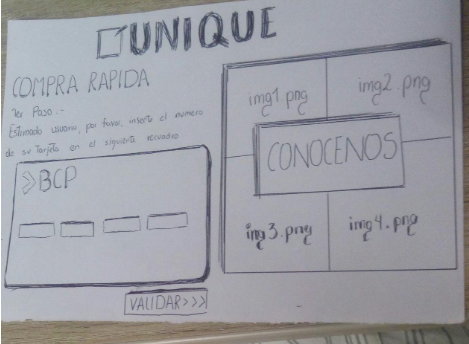 UNIQUE
COMPRA RAPIDA
1er Paso.-
Estimado usuario, por favor, inserte el numero
de su tarjeta en el siguiente recuadro
>>BCP
VALIDAR>>>
img1.png
img2.png
CONOCENOS
img3.png
img4.png